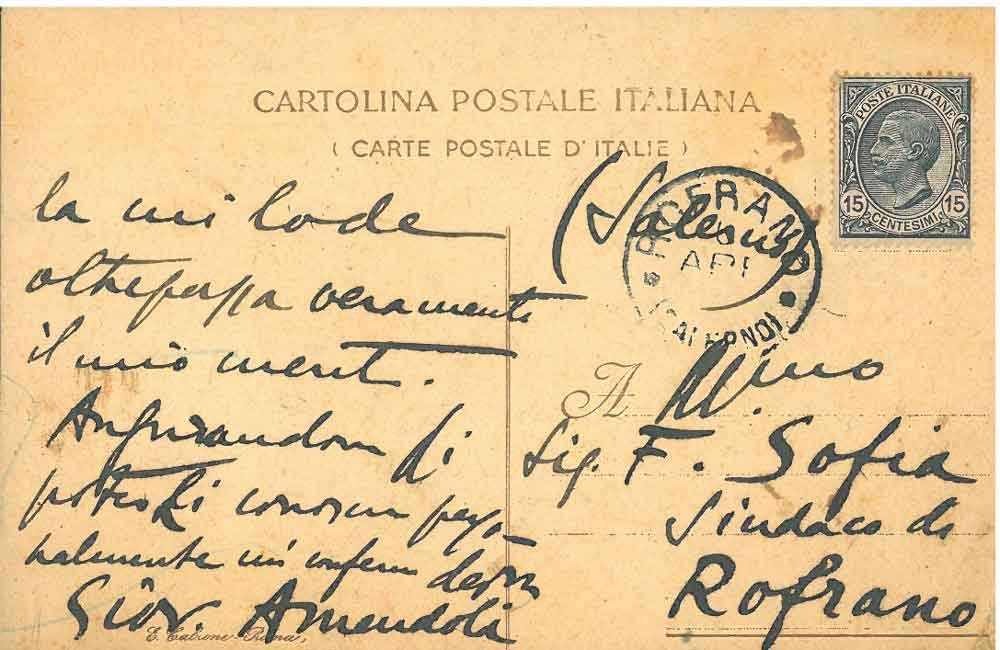 CARTOLINA POSTALE ITALIANA
( CARTE POSTALE D'ITALIE )
POSTE ITALIANE
15 CENTESIMI 15
ROFRANO
API
(SALERNO)
la mi lode
oltrepassa veramente
il mio merit.
Augurandom di
poterLi conoscer perso
nalmente mi confermo
Giov. Amendola
(Salerno)
A Ill.mo
Sig. F. Sofia
Sindaco di
Rofrano
E. Calzone-Roma